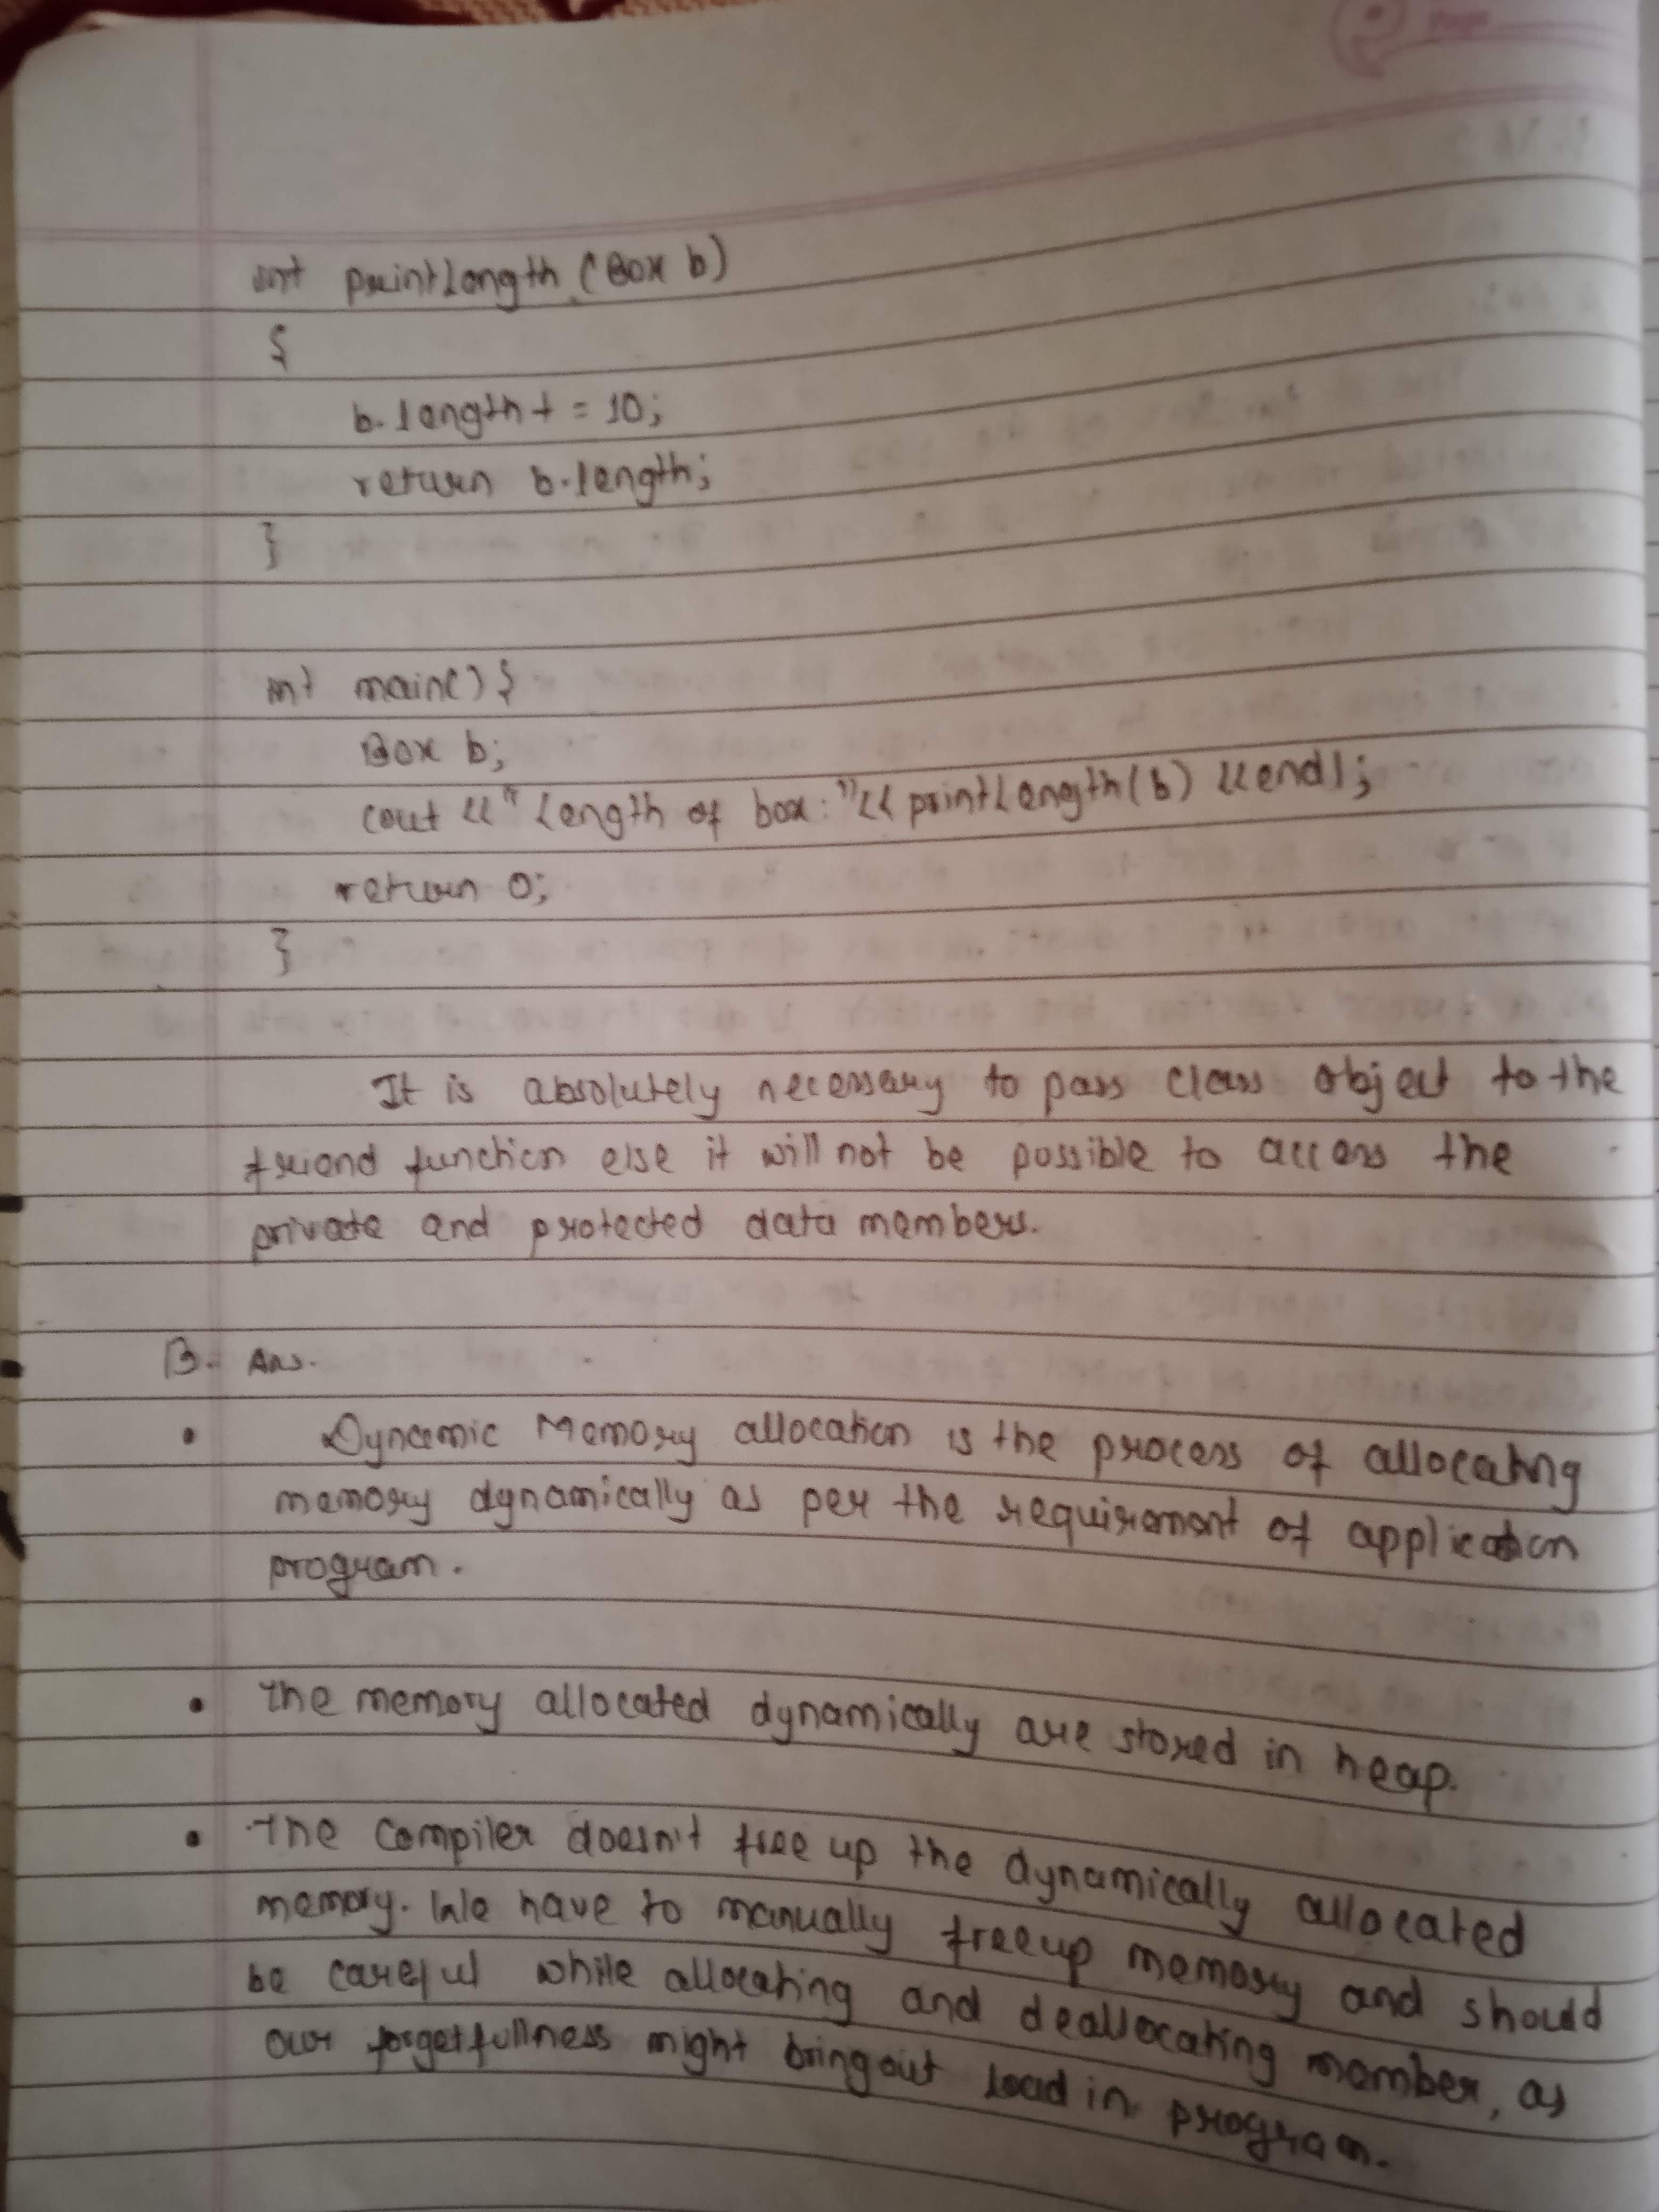 Page
int printLength (Box b)
{
b.length += 10;
return b.length;
}
int main() {
Box b;
cout << " Length of box: " << printLength(b) << endl;
return 0;
}
It is absolutely necessary to pass class object to the
friend function else it will not be possible to access the
private and protected data members.
B. Ans.
• Dynamic Memory allocation is the process of allocating
memory dynamically as per the requirement of application
program.
• The memory allocated dynamically are stored in heap.
• The compiler doesn't free up the dynamically allocated
memory. We have to manually free up memory and should
be careful while allocating and deallocating member, as
our forgetfullness might bring out load in program.